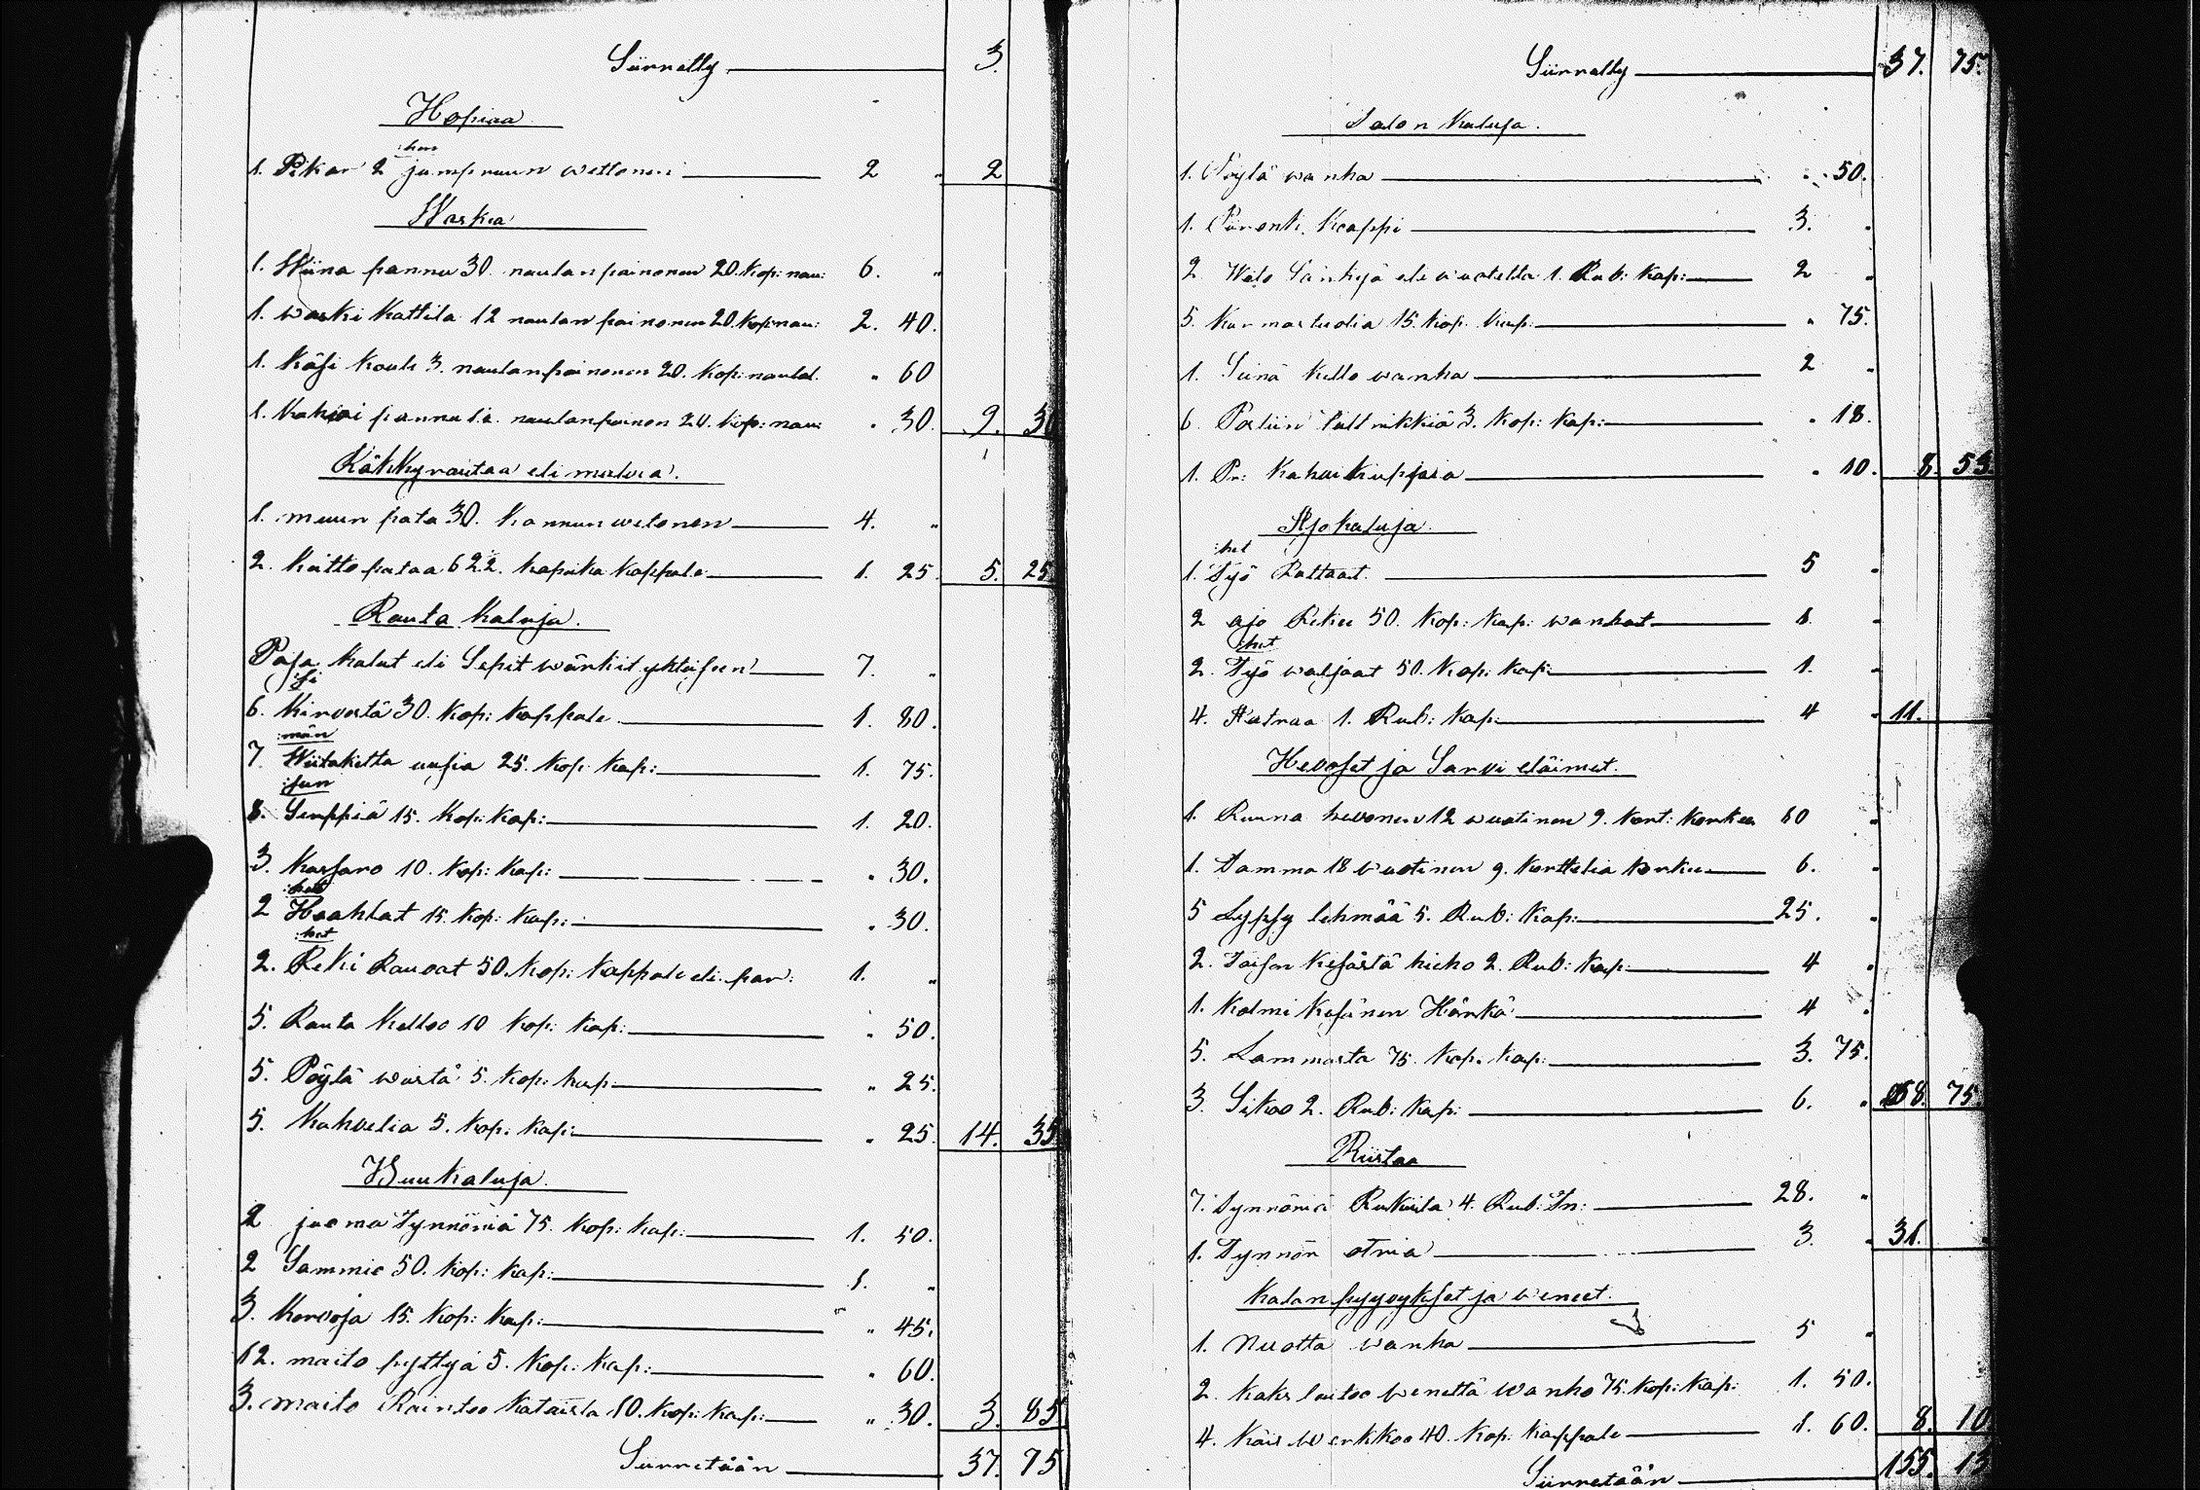 Siirretty 3.
Hopiaa
:han
1. Pikar 2 jumpruun wettonen 2 " 2
Waskia
1. Wiina pannu 30. naulan painonen 20. Kop: nau: 6. "
1. waski Kattila 12 naulan painonen 20. Kop: nau: 2. 40.
1. Käsi Kouli 3. naulan painonen 20. Kop: naulal. " 60
1. Kahwi pannu 1½ naulan painon 20. Kop: nau: " 30. 9. 30
Käkkyrautaa eli malwia.
1. muuri pata 30. Kannun wetonen 4. "
2. Keitto pataa 62½ kapeika Kappale 1. 25 5. 25
Rauta Kaluja.
Paja Kalut eli Sepit wärkit yhteisen 7. "
:si
6. Kirwestä 30. Kop: Kappale. 1. 80.
:män
7. Wiitaketta uusia 25. Kop: Kap: 1. 75.
:sun
8. Sirppiä 15. Kop: Kap: 1. 20.
3. Kassaro 10. Kop: Kap: " 30.
:hat
2 Haahlat 15. Kop: Kap: " 30.
:het
2. Reki Rauoat 50. Kop: Kappale eli par: 1. "
5. Rauta Kelloo 10 Kop: Kap: " 50.
5. Pöytä wästä 5. Kop: Kap: " 25.
5. Kahvelia 5. Kop. Kap: " 25. 14. 35
Puukaluja.
2 juoma Tynnöriä 75. Kop: Kap: 1. 50.
2 Sammio 50. Kop: Kap: 1. "
3. Korwoja 15. Kop: Kap: " 45.
12. maito pyttyä 5. Kop: Kap: " 60.
3. maito Raintoo Kataista 10. Kop: Kap: " 30. 3. 85
Siirretään 37. 75
Siirretty 37. 75.
Talon Kaluja.
1. Pöytä wanha " 50.
1. Piironki Kaappi 3. "
2 Wälo Sänkyä eli wuotetta 1. Rub: Kap: 2 "
5. Karmastuolia 15. Kop. Kap: " 75.
1. Seinä Kello wanha 2 "
6. Posliin talrikkiä 3. Kop: Kap: " 18.
1. Pr: Kahwi Kuppia " 10. 8. 53
Ajokaluja.
:het
1. Työ Rattaat. 5 "
2 ajo Rekee 50. Kop: Kap: wanhat 1. "
:hat
2. Työ waljaat 50. Kop: Kap: 1. "
4. Satraa 1. Rub: Kap: 4 " 11.
Hevoset ja Sarvi eläimet.
1. Ruuna hevonen 12 wuotinen 9. Kort: Korkia 10 "
1. Tamma 18 wuotinen 9. Korttelia Korkia 6. "
5 Lypsy lehmää 5. Rub: Kap: 25. "
2. Toisen Kesästä hieho 2. Rub: Kap: 4 "
1. Kolmi Kesänen Härkä 4 "
5. Lammasta 75. Kop. Kap: 3. 75.
3. Sikoo 2. Rub: Kap: 6. " 58. 75
Riistaa
7. Tynnöriä Rukiita 4. Rub: Tn: 28. "
1. Tynnör otria 3. " 31.
Kalan pyyvykset ja weneet.
1. Nuotta wanha 5 "
2. Kaks laitoo wenettä wanho 75. Kop: Kap: 1. 50.
4. Käis werkkoo 40. Kop: Kappale 1. 60. 8. 10
Siirretään 155. 13